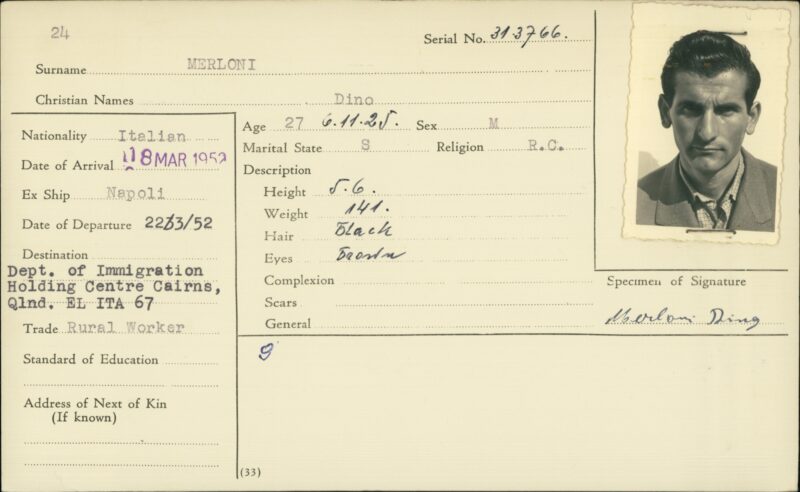 24
Serial No. 313766.
Surname MERLONI
Christian Names Dino
Nationality Italian
Date of Arrival 18 MAR 1952
Ex Ship Napoli
Date of Departure 22/3/52
Destination
Dept. of Immigration
Holding Centre Cairns,
Qlnd. EL ITA 67
Trade Rural Worker
Standard of Education
Address of Next of Kin
(If known)
Age 27 6.11.25. Sex M
Marital State S Religion R.C.
Description
Height 5.6.
Weight 141.
Hair Black
Eyes Brown
Complexion
Scars
General
9
(33)
Specimen of Signature
Merloni Dino